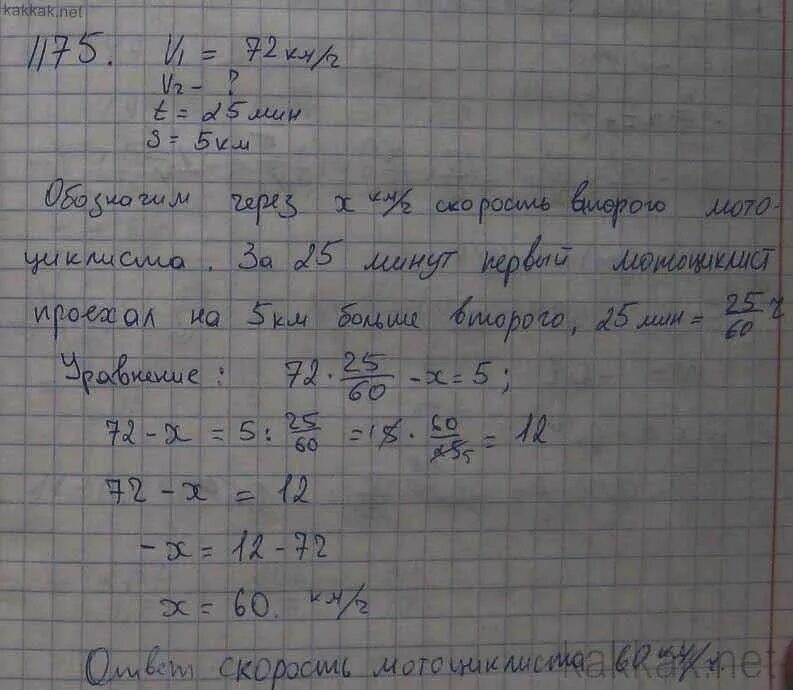 kakkak.net
1175. V₁ = 72 км/ч
V₂ - ?
t = 25 мин
S = 5 км
Обозначим через x км/ч скорость второго мото-
циклиста. За 25 минут первый мотоциклист
проехал на 5 км больше второго, 25 мин = 25/60 ч
Уравнение: 72 · 25/60 - x = 5;
72 - x = 5 : 25/60 = 5 · 60/25 = 12
72 - x = 12
- x = 12 - 72
x = 60. км/ч
Ответ скорость мотоциклиста 60 км/ч
kakkak.net